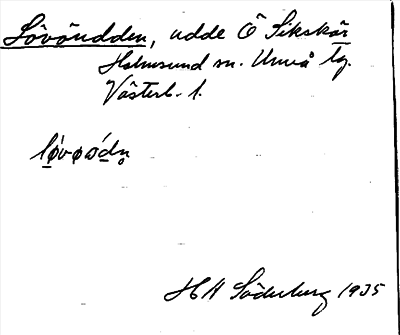 Lövöudden, udde Ö Sikskär
Holmsund sn. Umeå tg.
Västerb. l.
HA Söderberg 1935